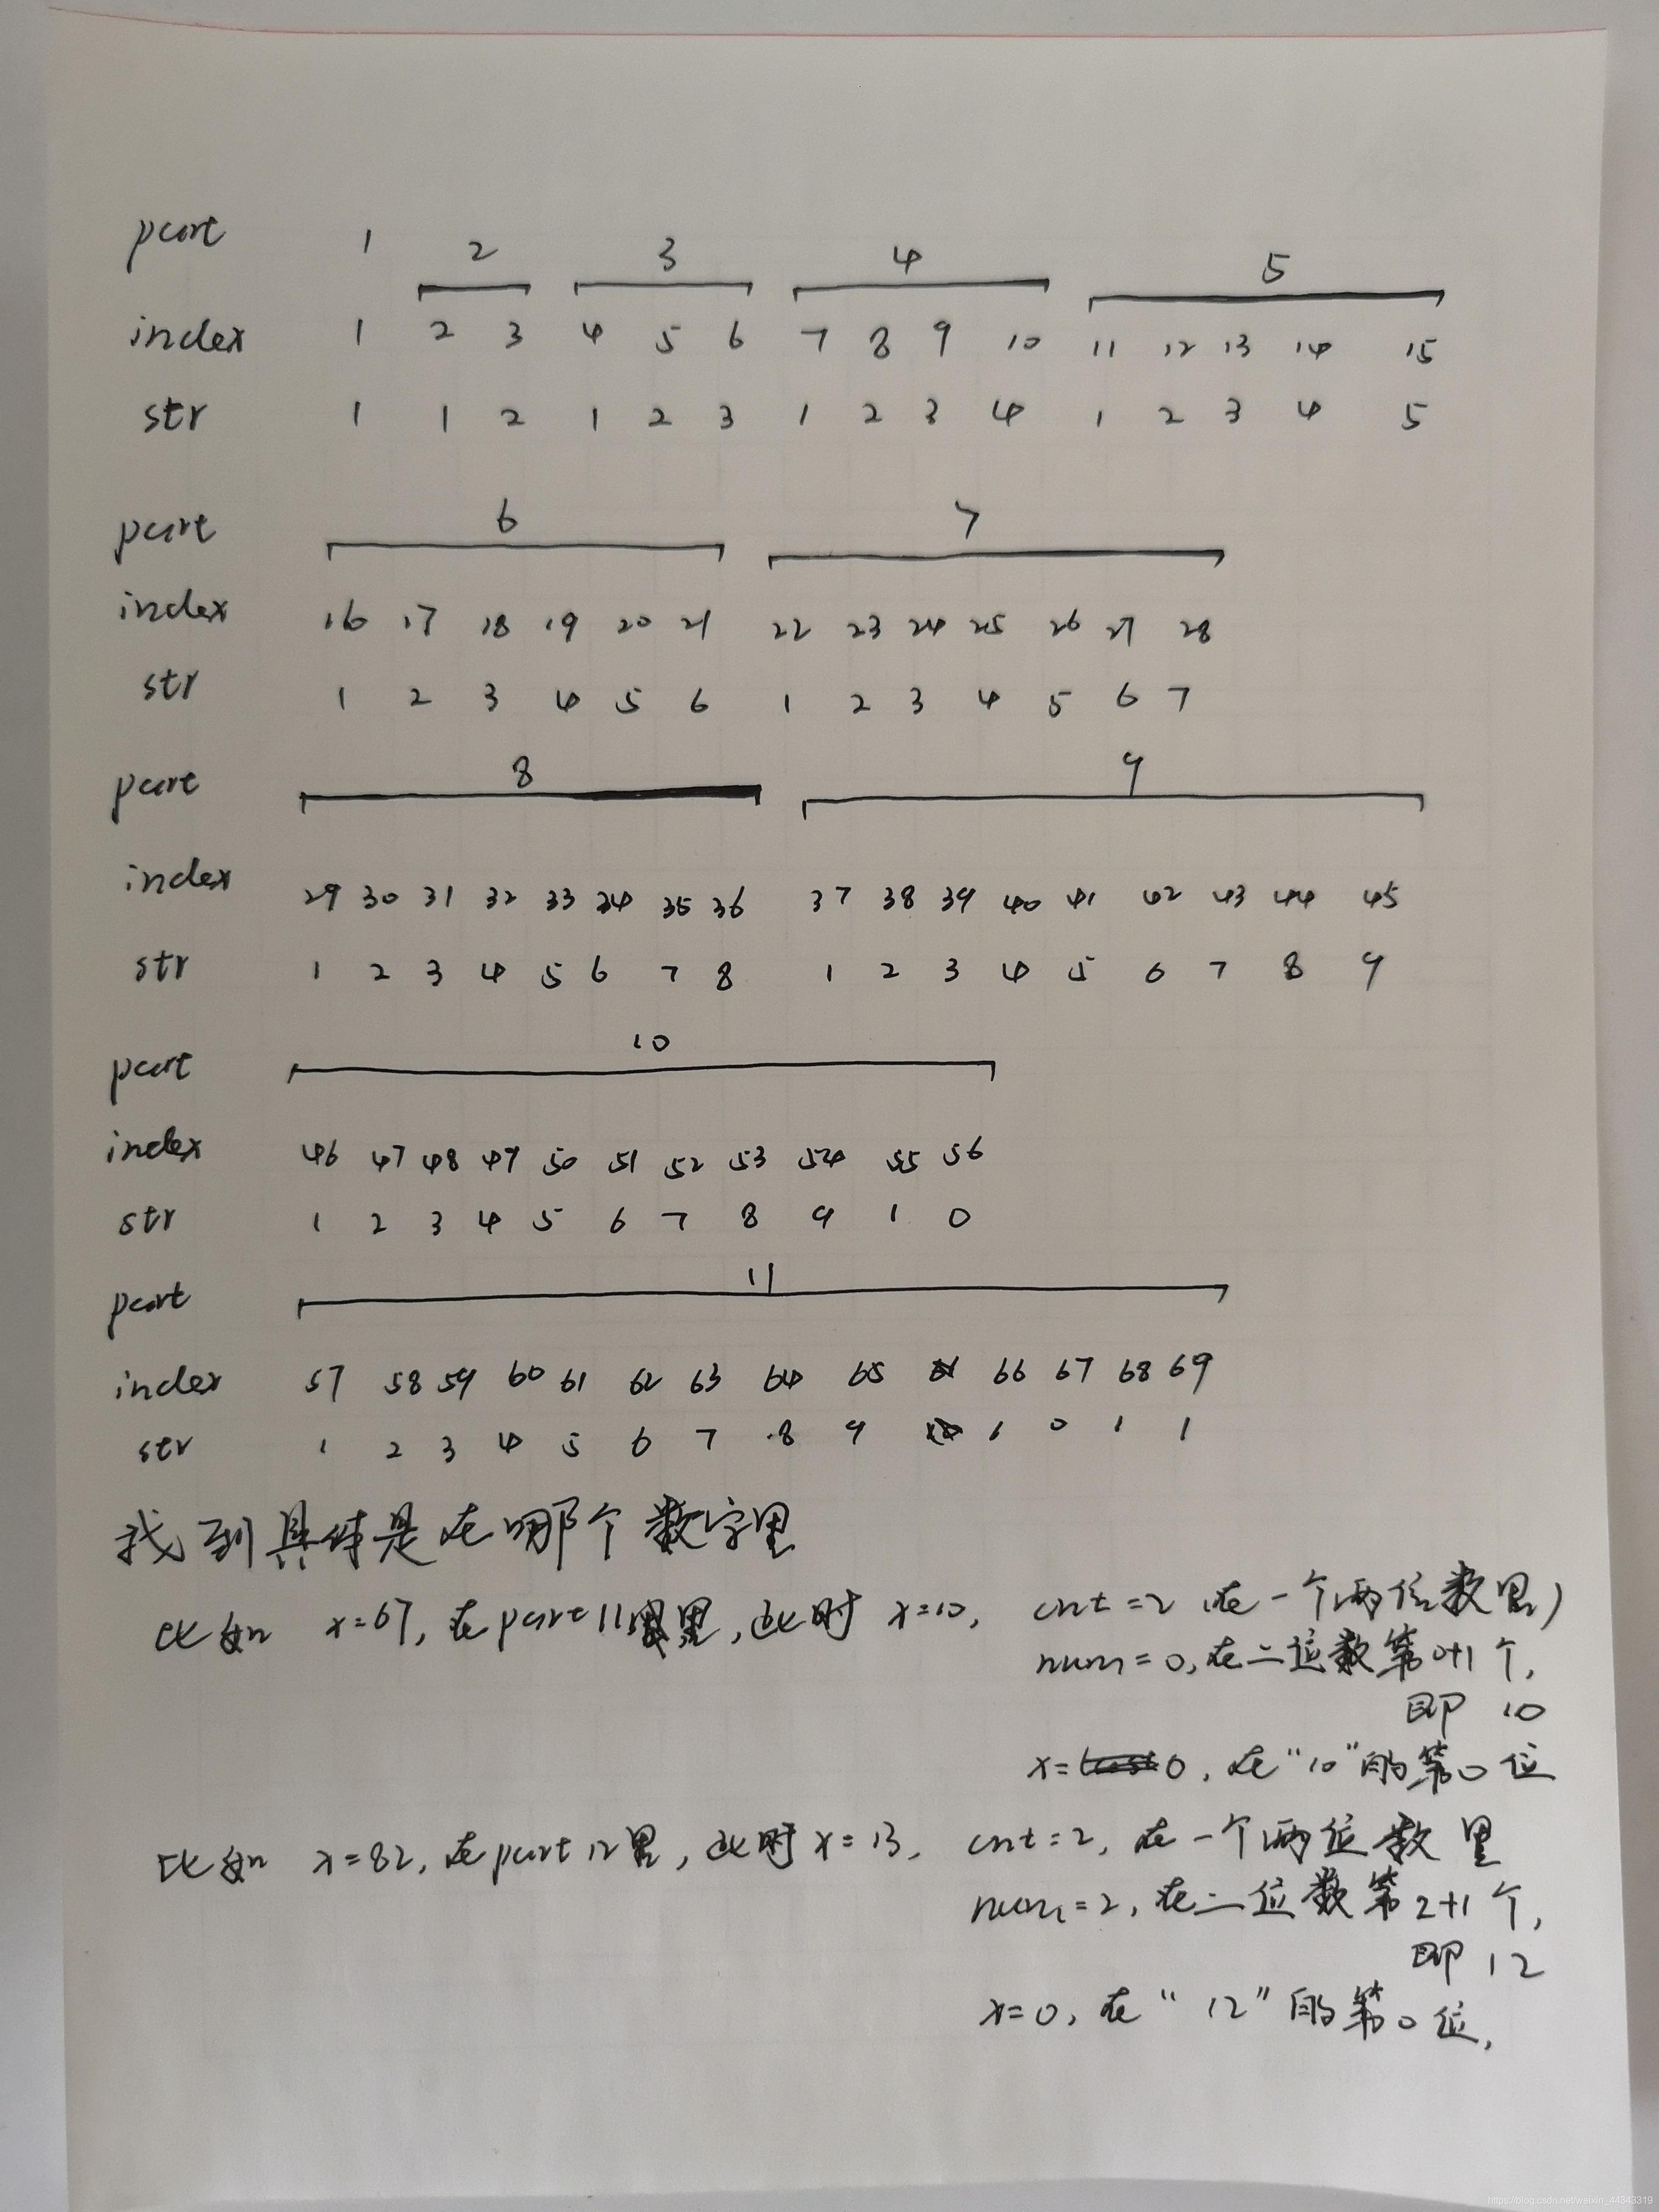 part 1 2 3 4 5
index 1 2 3 4 5 6 7 8 9 10 11 12 13 14 15
str 1 1 2 1 2 3 1 2 3 4 1 2 3 4 5
part 6 7
index 16 17 18 19 20 21 22 23 24 25 26 27 28
str 1 2 3 4 5 6 1 2 3 4 5 6 7
part 8 9
index 29 30 31 32 33 34 35 36 37 38 39 40 41 42 43 44 45
str 1 2 3 4 5 6 7 8 1 2 3 4 5 6 7 8 9
part 10
index 46 47 48 49 50 51 52 53 54 55 56
str 1 2 3 4 5 6 7 8 9 1 0
part 11
index 57 58 59 60 61 62 63 64 65 66 67 68 69
str 1 2 3 4 5 6 7 8 9 1 0 1 1
找到具体是在哪个数字里
比如 x=67, 在part11里, 此时 x=10, cnt=2 (在一个两位数里)
num=0, 在二位数第0+1个,
即 10
x=0, 在"10"的第0位
比如 x=82, 在part12里, 此时x=13, cnt=2, 在一个两位数里
num=2, 在二位数第2+1个,
即 12
x=0, 在"12"的第0位,
https://blog.csdn.net/weixin_44343319